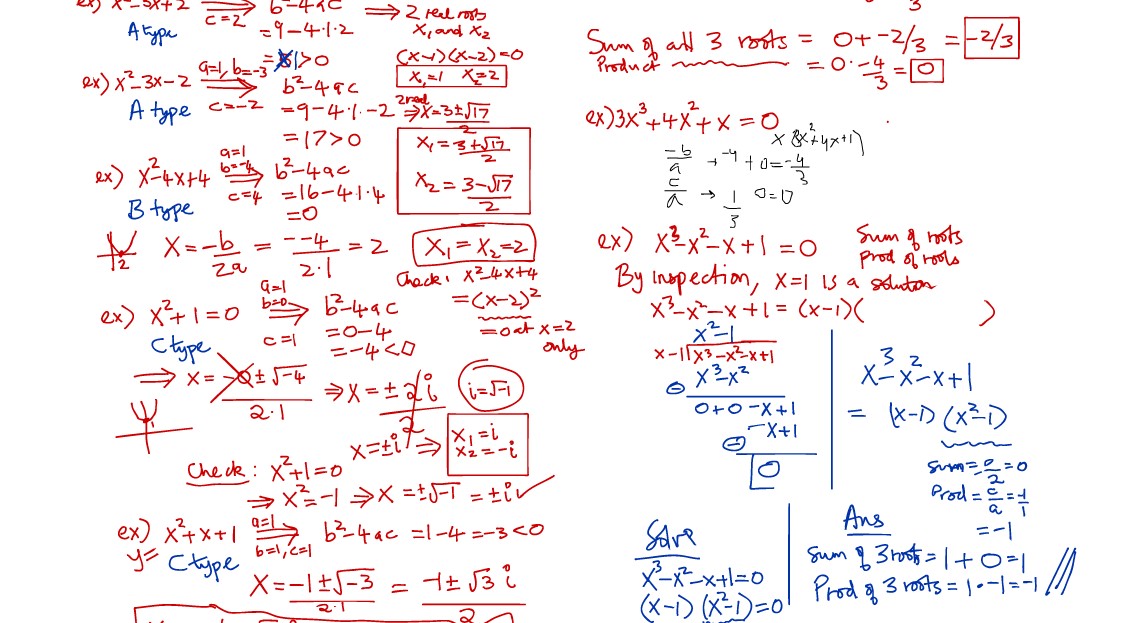 ex) x²-3x+2 ⟹ b²-4ac ⟹ 2 real roots
c=2
A type = 9-4·1·2 x₁ and x₂
= 1>0 (x-1)(x-2)=0
x₁=1 x₂=2
ex) x²-3x-2 a=1, b=-3 ⟹ b²-4ac
A type c=-2 = 9-4·1·-2 2 real ⟹ x = 3±√17/2
= 17>0
x₁ = 3+√17/2
x₂ = 3-√17/2
ex) x²-4x+4 a=1 b=-4 ⟹ c=4 b²-4ac
B type = 16-4·1·4
= 0
2 x = -b/2a = --4/2·1 = 2 x₁=x₂=2
Check: x²-4x+4
= (x-2)²
= 0 at x=2
only
ex) x²+1=0 a=1 b=0 ⟹ c=1 b²-4ac
C type = 0-4
= -4<0
⟹ x = -0±√-4/2·1 ⟹ x = ±2i/2 i=√-1
x=±i ⟹ x₁=i
x₂=-i
Check: x²+1=0
⟹ x²=-1 ⟹ x=±√-1 = ±i ✓
ex) x²+x+1 a=1 ⟹ b=1, c=1 b²-4ac = 1-4 = -3<0
y= C type
x = -1±√-3/2·1 = -1±√3 i/2
3
Sum of all 3 roots = 0+-2/3 = -2/3
Product = 0·-4/3 = 0
ex) 3x³+4x²+x=0
x(3x²+4x+1)
-b/a → -4 + 0 = -4/3
c/a → 1/3 0=0
ex) x³-x²-x+1=0 Sum of roots
Prod of roots
By inspection, x=1 is a solution
x³-x²-x+1 = (x-1)( )
x²-1
x-1 x³-x²-x+1
⊖ x³-x²
0+0-x+1
⊖ -x+1
0
x³-x²-x+1
= (x-1)(x²-1)
sum = 0/2 = 0
Prod = c/a = -1/1
= -1
Solve
x³-x²-x+1=0
(x-1)(x²-1)=0
Ans
Sum of 3 roots = 1+0=1
Prod of 3 roots = 1·-1=-1 //